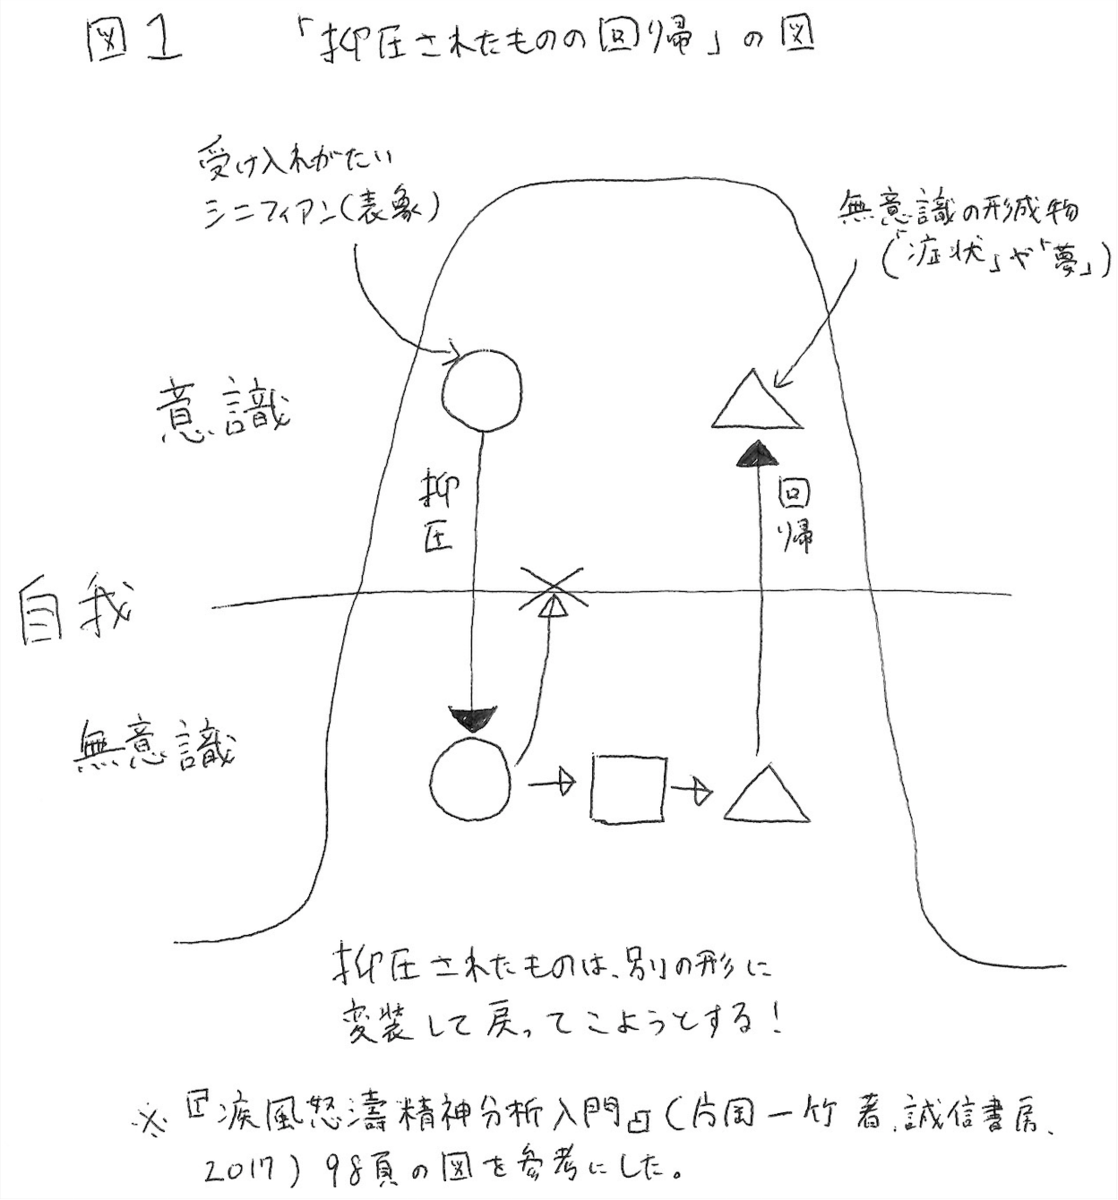 図1 「抑圧されたものの回帰」の図
受け入れがたい
シニフィアン(表象)
無意識の形成物
(「症状」や「夢」)
意識
抑圧
回帰
自我
無意識
抑圧されたものは、別の形に
変装して戻ってこようとする！
※『疾風怒濤精神分析入門』(片岡一竹著、誠信書房、
2017) 98頁の図を参考にした。